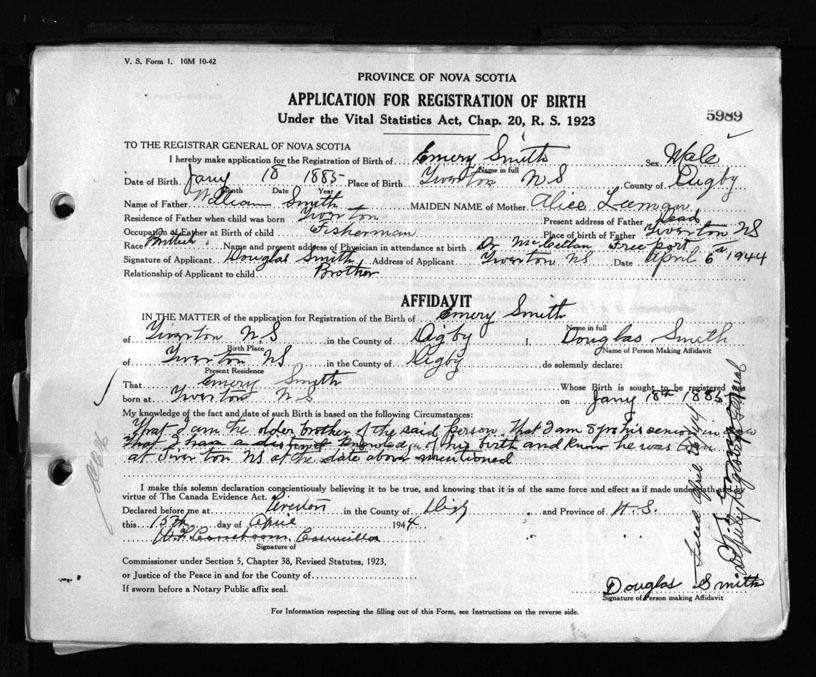 V. S. Form 1. 10M 10-42
PROVINCE OF NOVA SCOTIA
APPLICATION FOR REGISTRATION OF BIRTH
5989
Under the Vital Statistics Act, Chap. 20, R. S. 1923
TO THE REGISTRAR GENERAL OF NOVA SCOTIA
I hereby make application for the Registration of Birth of Emery Smith Sex Male
Name in full
Date of Birth Jany 18 1885 Place of Birth Tiverton NS County of Digby
Month Date Year
Name of Father William Smith MAIDEN NAME of Mother Alice Leeman
Residence of Father when child was born Tiverton Present address of Father Dead
Occupation of Father at Birth of child Fisherman Place of birth of Father Tiverton NS
Race British Name and present address of Physician in attendance at birth Dr Freeport
Signature of Applicant Douglas Smith Address of Applicant Tiverton NS Date April 6th 1944
Relationship of Applicant to child Brother
AFFIDAVIT
IN THE MATTER of the application for Registration of the Birth of Emery Smith
Name in full
of Tiverton N.S in the County of Digby I, Douglas Smith
Birth Place Name of Person Making Affidavit
of Tiverton NS in the County of Digby do solemnly declare:
Present Residence
That Emery Smith Whose Birth is sought to be registered was
born at Tiverton N S on Jany 18th 1885
My knowledge of the fact and date of such Birth is based on the following Circumstances:
That I am the older brother of the said person, that I am 8 yrs his senior
that I have a distinct knowledge of his birth and know he was born
at Tiverton NS at the date above mentioned
I make this solemn declaration conscientiously believing it to be true, and knowing that it is of the same force and effect as if made under oath and by
virtue of The Canada Evidence Act.
Declared before me at Tiverton in the County of Digby and Province of N.S.
this 15th day of April 1944
Councillor
Signature of
Commissioner under Section 5, Chapter 38, Revised Statutes, 1923,
or Justice of the Peace in and for the County of
If sworn before a Notary Public affix seal.
Douglas Smith
Signature of Person making Affidavit
For Information respecting the filling out of this Form, see Instructions on the reverse side.
Filed April 1944
Deputy Registrar General